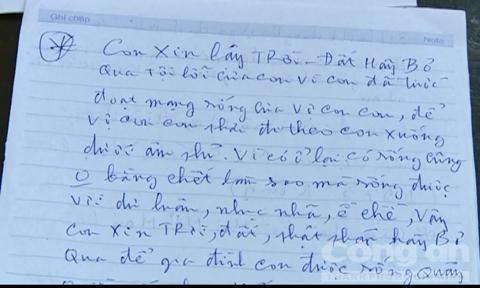 Ghi chép
Note
Con Xin lạy TRời - Đất Hãy Bỏ
Qua tội lỗi của con vì con đã tước
đoạt mạng sống của vợ con con, để
vợ con con phải đi theo con xuống
dưới âm phủ. Vì có ở lại có sống cũng
o bằng chết làm sao mà sống được
Vì dư luận, nhục nhã, ê chề, Vậy
Con Xin TRời, đất, phật thánh hãy Bỏ
Qua để gia đình con được sống quay
Công an